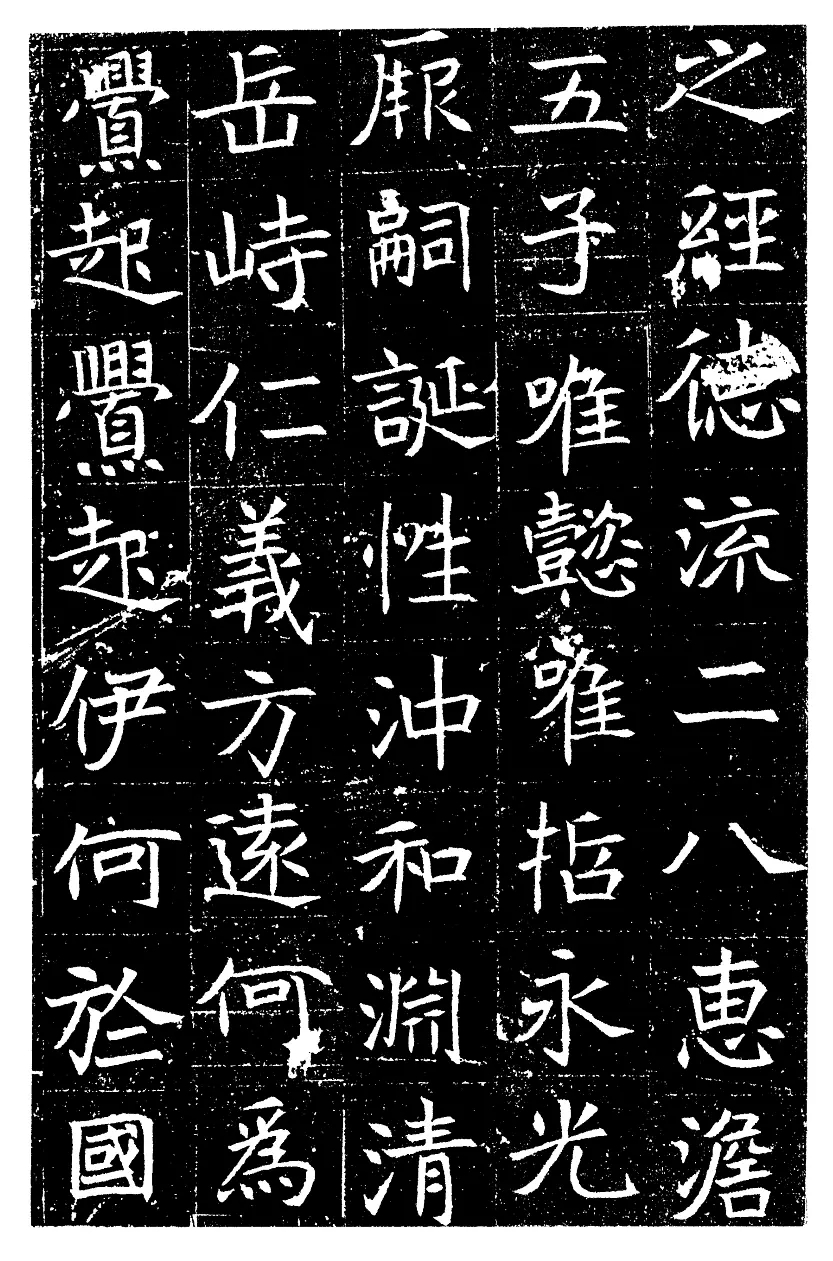 之經德流二八惠澹
五子唯懿唯哲永光
厥嗣誕性沖和淵清
岳峙仁義方遠何爲
釁起釁起伊何於國